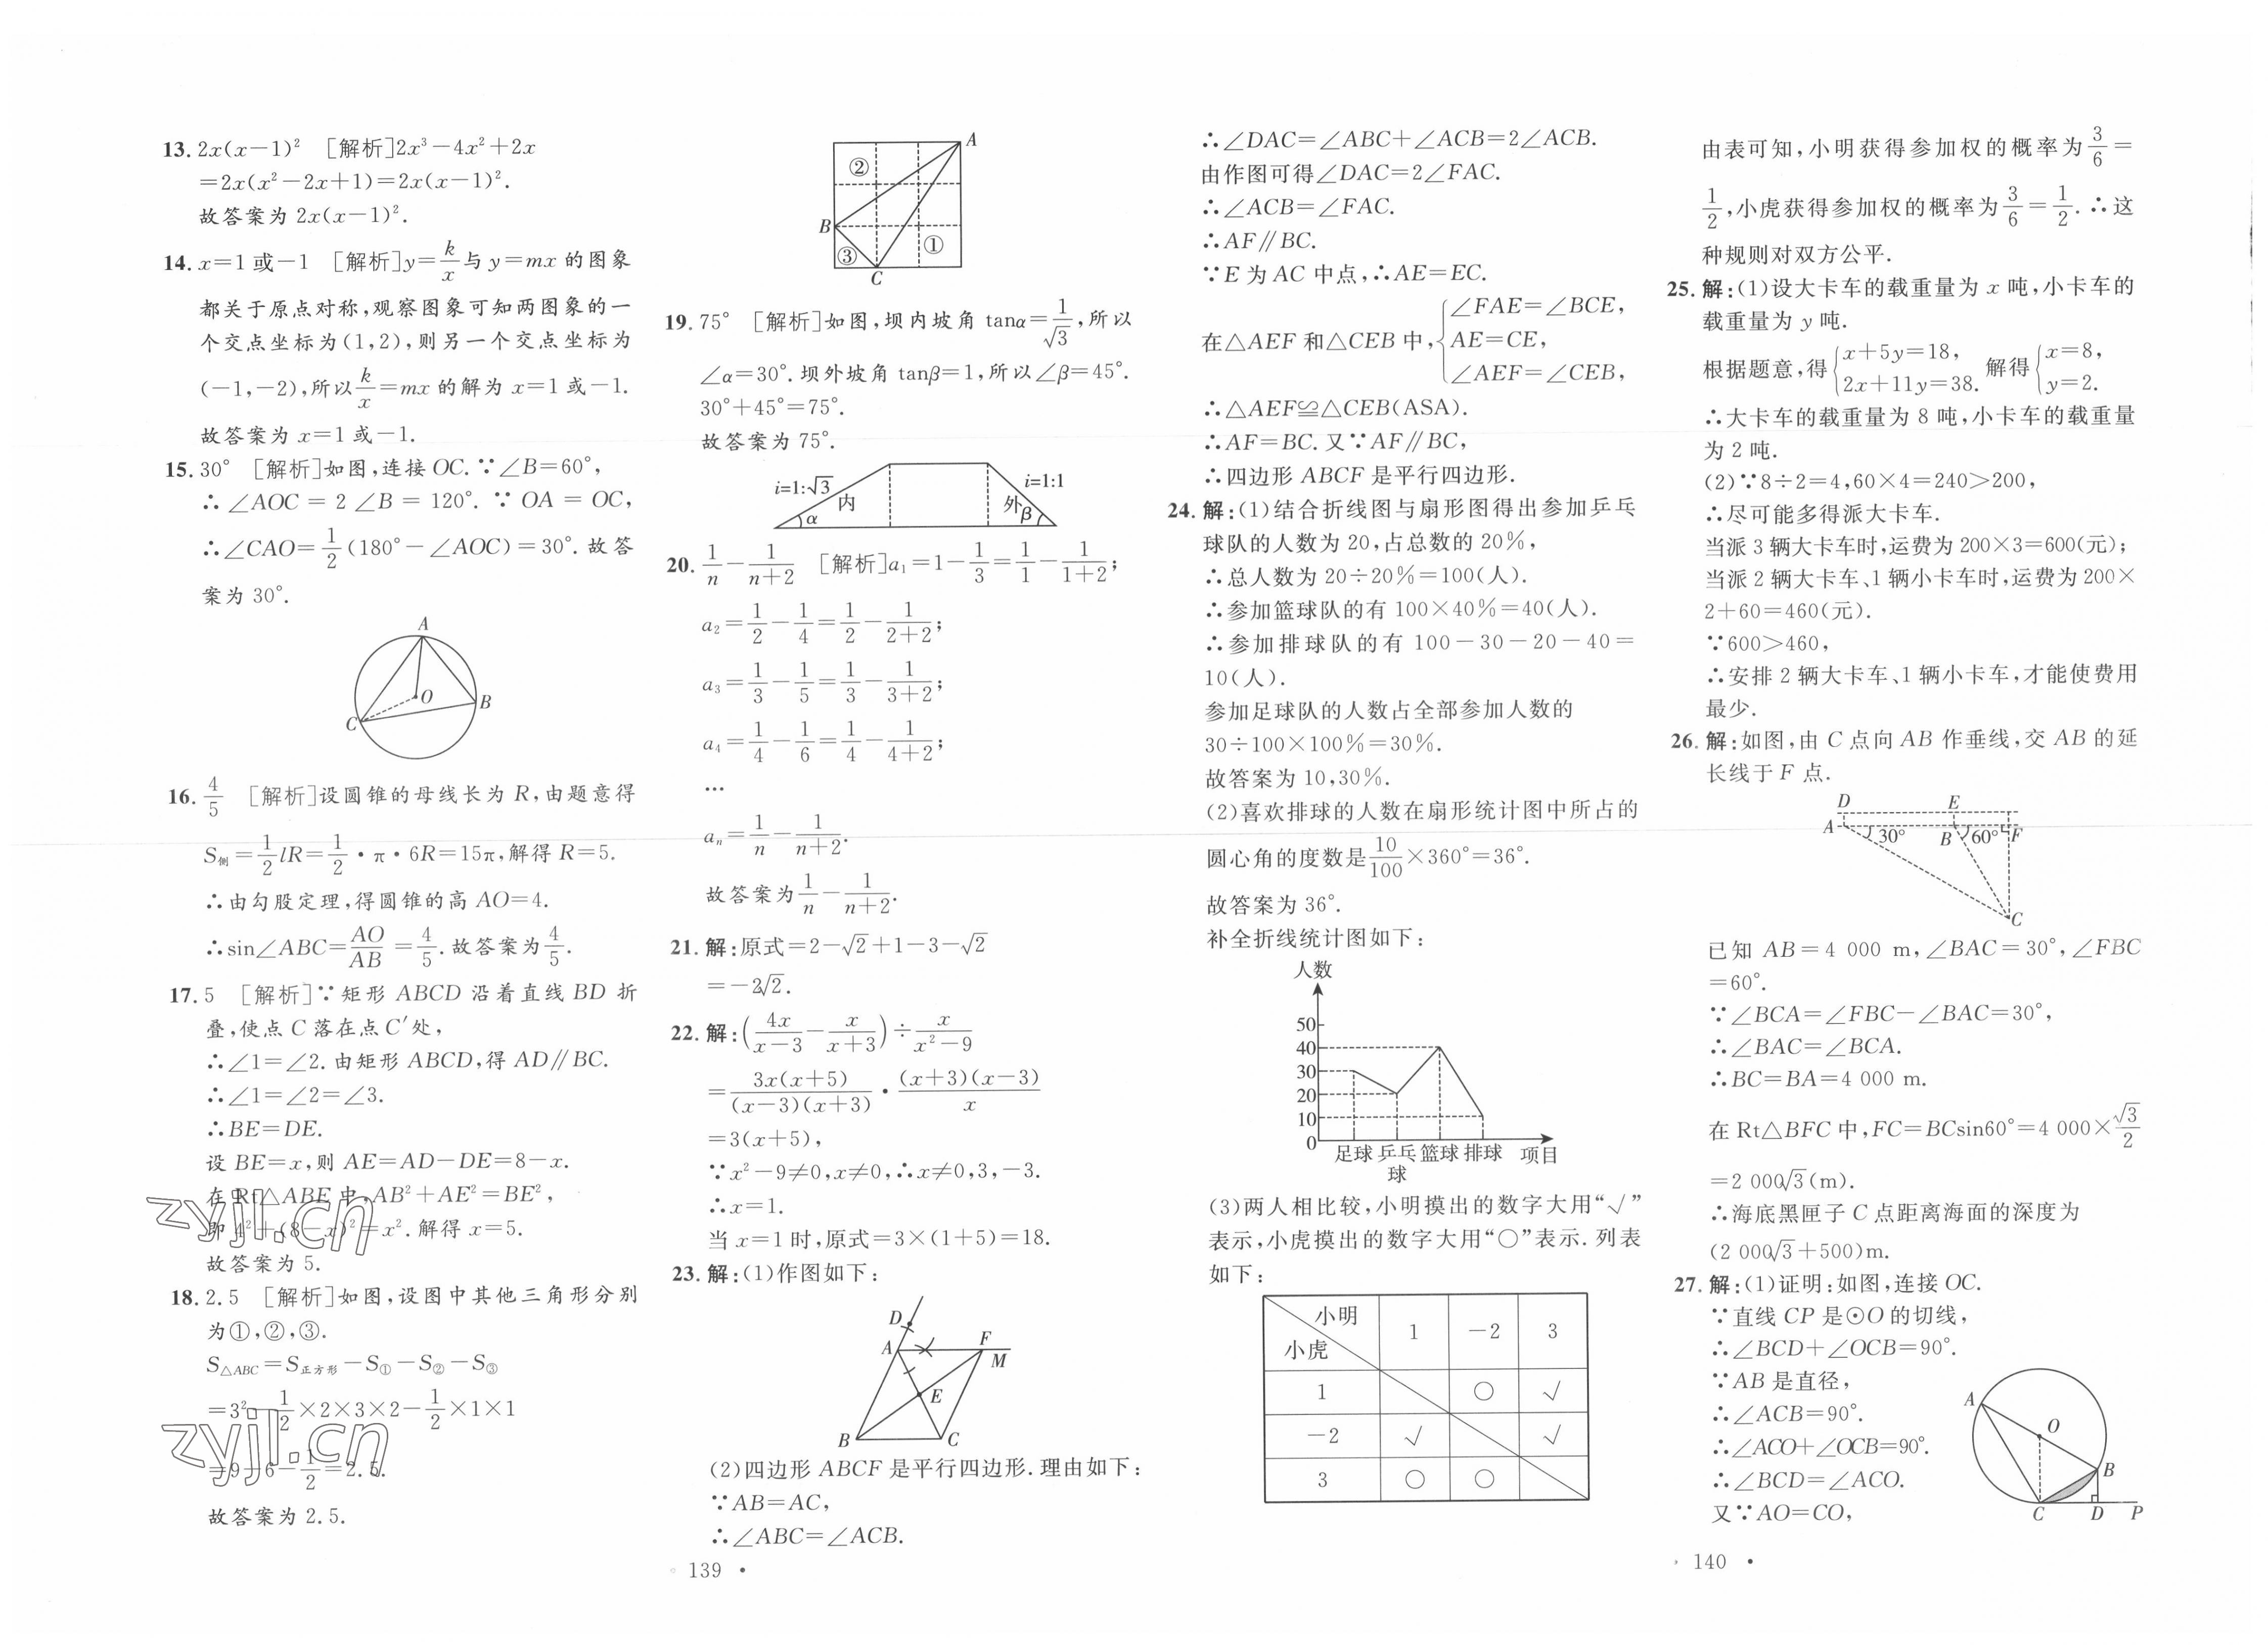 13. 2x(x-1)² [解析]2x³-4x²+2x
=2x(x²-2x+1)=2x(x-1)².
故答案为 2x(x-1)².
14. x=1 或-1 [解析]y=k/x与 y=mx 的图象
都关于原点对称,观察图象可知两图象的一
个交点坐标为(1,2),则另一个交点坐标为
(-1,-2),所以k/x=mx 的解为 x=1 或-1.
故答案为 x=1 或-1.
15. 30° [解析]如图,连接 OC.∵∠B=60°,
∴∠AOC=2∠B=120°.∵OA=OC,
∴∠CAO=1/2(180°-∠AOC)=30°.故答
案为 30°.
A
O
B
C
16. 4/5 [解析]设圆锥的母线长为 R,由题意得
S侧=1/2lR=1/2·π·6R=15π,解得 R=5.
∴由勾股定理,得圆锥的高 AO=4.
∴sin∠ABC=AO/AB=4/5.故答案为4/5.
17. 5 [解析]∵矩形 ABCD 沿着直线 BD 折
叠,使点 C 落在点 C′处,
∴∠1=∠2.由矩形 ABCD,得 AD∥BC.
∴∠1=∠2=∠3.
∴BE=DE.
设 BE=x,则 AE=AD-DE=8-x.
在 Rt△ABE 中,AB²+AE²=BE²,
即 4²+(8-x)²=x².解得 x=5.
故答案为 5.
zyjl.cn
18. 2.5 [解析]如图,设图中其他三角形分别
为①,②,③.
S△ABC=S正方形-S①-S②-S③
=3²-1/2×2×3×2-1/2×1×1
=9-6-1/2=2.5.
故答案为 2.5.
zyjl.cn
A
②
B
③
①
C
19. 75° [解析]如图,坝内坡角 tanα=1/√3,所以
∠α=30°.坝外坡角 tanβ=1,所以∠β=45°.
30°+45°=75°.
故答案为 75°.
i=1:√3
内
α
外
β
i=1:1
20. 1/n-1/(n+2) [解析]a₁=1-1/3=1/1-1/(1+2);
a₂=1/2-1/4=1/2-1/(2+2);
a₃=1/3-1/5=1/3-1/(3+2);
a₄=1/4-1/6=1/4-1/(4+2);
…
aₙ=1/n-1/(n+2).
故答案为1/n-1/(n+2).
21. 解:原式=2-√2+1-3-√2
=-2√2.
22. 解:(4x/(x-3)-x/(x+3))÷x/(x²-9)
=3x(x+5)/((x-3)(x+3))·(x+3)(x-3)/x
=3(x+5),
∵x²-9≠0,x≠0,∴x≠0,3,-3.
∴x=1.
当 x=1 时,原式=3×(1+5)=18.
23. 解:(1)作图如下:
D
A
F
M
E
B
C
(2)四边形 ABCF 是平行四边形.理由如下:
∵AB=AC,
∴∠ABC=∠ACB.
139
∴∠DAC=∠ABC+∠ACB=2∠ACB.
由作图可得∠DAC=2∠FAC.
∴∠ACB=∠FAC.
∴AF∥BC.
∵E 为 AC 中点,∴AE=EC.
在△AEF 和△CEB 中,{∠FAE=∠BCE,
AE=CE,
∠AEF=∠CEB,
∴△AEF≌△CEB(ASA).
∴AF=BC.又∵AF∥BC,
∴四边形 ABCF 是平行四边形.
24. 解:(1)结合折线图与扇形图得出参加乒乓
球队的人数为 20,占总数的 20%,
∴总人数为 20÷20%=100(人).
∴参加篮球队的有 100×40%=40(人).
∴参加排球队的有 100-30-20-40=
10(人).
参加足球队的人数占全部参加人数的
30÷100×100%=30%.
故答案为 10,30%.
(2)喜欢排球的人数在扇形统计图中所占的
圆心角的度数是10/100×360°=36°.
故答案为 36°.
补全折线统计图如下:
人数
50
40
30
20
10
0
足球 乒乓球 篮球 排球 项目
(3)两人相比较,小明摸出的数字大用“√”
表示,小虎摸出的数字大用“○”表示.列表
如下:
小明
小虎
1 -2 3
1 ○ √
-2 √ √
3 ○ ○
由表可知,小明获得参加权的概率为3/6=
1/2,小虎获得参加权的概率为3/6=1/2.∴这
种规则对双方公平.
25. 解:(1)设大卡车的载重量为 x 吨,小卡车的
载重量为 y 吨.
根据题意,得{x+5y=18, 2x+11y=38. 解得{x=8, y=2.
∴大卡车的载重量为 8 吨,小卡车的载重量
为 2 吨.
(2)∵8÷2=4,60×4=240>200,
∴尽可能多得派大卡车.
当派 3 辆大卡车时,运费为 200×3=600(元);
当派 2 辆大卡车、1 辆小卡车时,运费为 200×
2+60=460(元).
∵600>460,
∴安排 2 辆大卡车、1 辆小卡车,才能使费用
最少.
26. 解:如图,由 C 点向 AB 作垂线,交 AB 的延
长线于 F 点.
D E
A 30° B 60° F
C
已知 AB=4 000 m,∠BAC=30°,∠FBC
=60°.
∵∠BCA=∠FBC-∠BAC=30°,
∴∠BAC=∠BCA.
∴BC=BA=4 000 m.
在 Rt△BFC 中,FC=BCsin60°=4 000×√3/2
=2 000√3(m).
∴海底黑匣子 C 点距离海面的深度为
(2 000√3+500)m.
27. 解:(1)证明:如图,连接 OC.
∵直线 CP 是⊙O 的切线,
∴∠BCD+∠OCB=90°.
∵AB 是直径,
∴∠ACB=90°.
∴∠ACO+∠OCB=90°.
∴∠BCD=∠ACO.
又∵AO=CO,
A
O
B
C D P
140